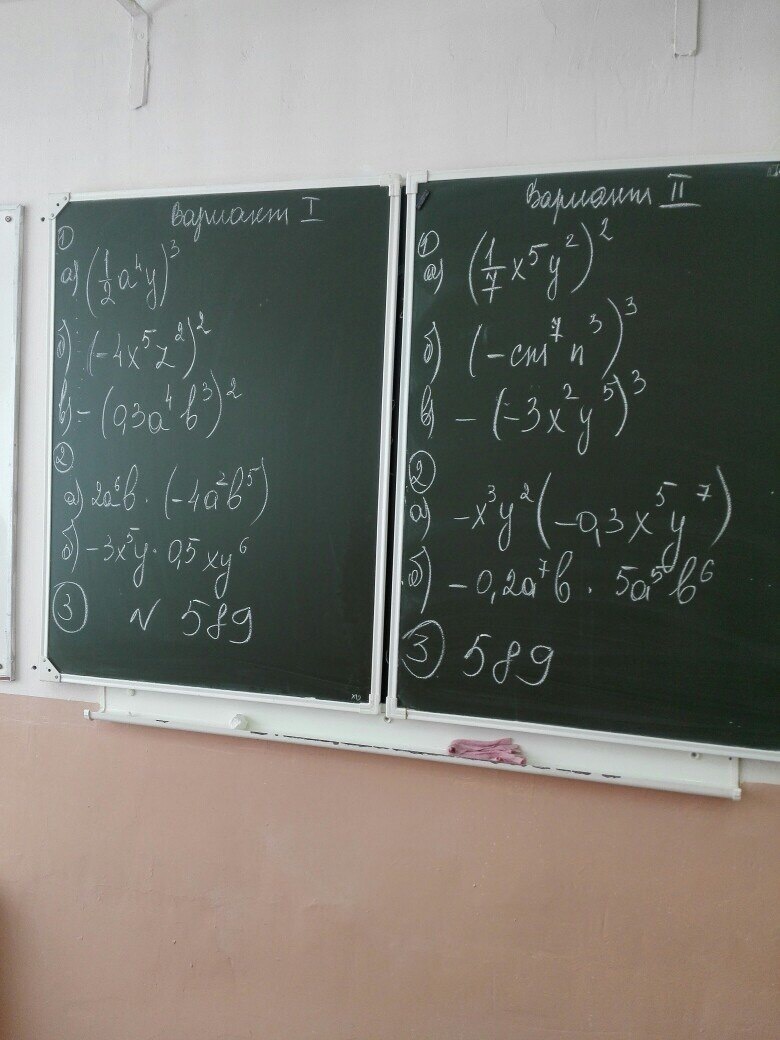 Вариант I
①
а) (1/2 a⁴y)³
б) (-4x⁵z²)²
в) -(0,3a⁴b³)²
②
а) 2a⁶b · (-4a²b⁵)
б) -3x⁵y · 0,5xy⁶
③ N 589
Вариант II
①
а) (1/7 x⁵y²)²
б) (-cm⁷n³)³
в) -(-3x²y⁵)³
②
а) -x³y²(-0,3x⁵y⁷)
б) -0,2a⁷b · 5a⁵b⁶
③ 589